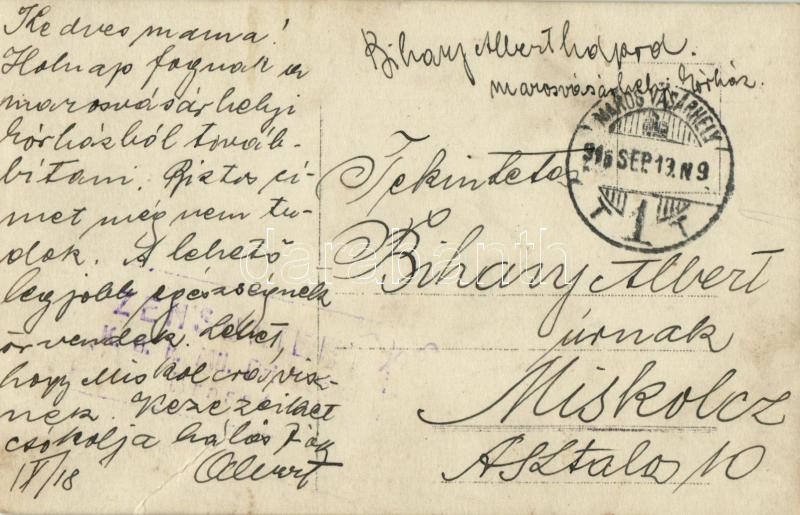 Kedves mama!
Holnap fognak a
marosvásárhelyi
kórházból továb-
bitani. Biztos cí-
met még nem tu-
dok. A lehető
legjobb egészségnek
örvendek. Lehet,
hogy Miskolcra visz-
nek. Kezeziket
csókolja hálás fia
Albert
IX/18
Bihary Albert hdjrd.
marosvásárhelyi kórház.
MAROSVÁSÁRHELY
916 SEP. 19. N 9
1
Tekintetes
Bihary Albert
úrnak
Miskolcz
Asztalos 10
darabanth